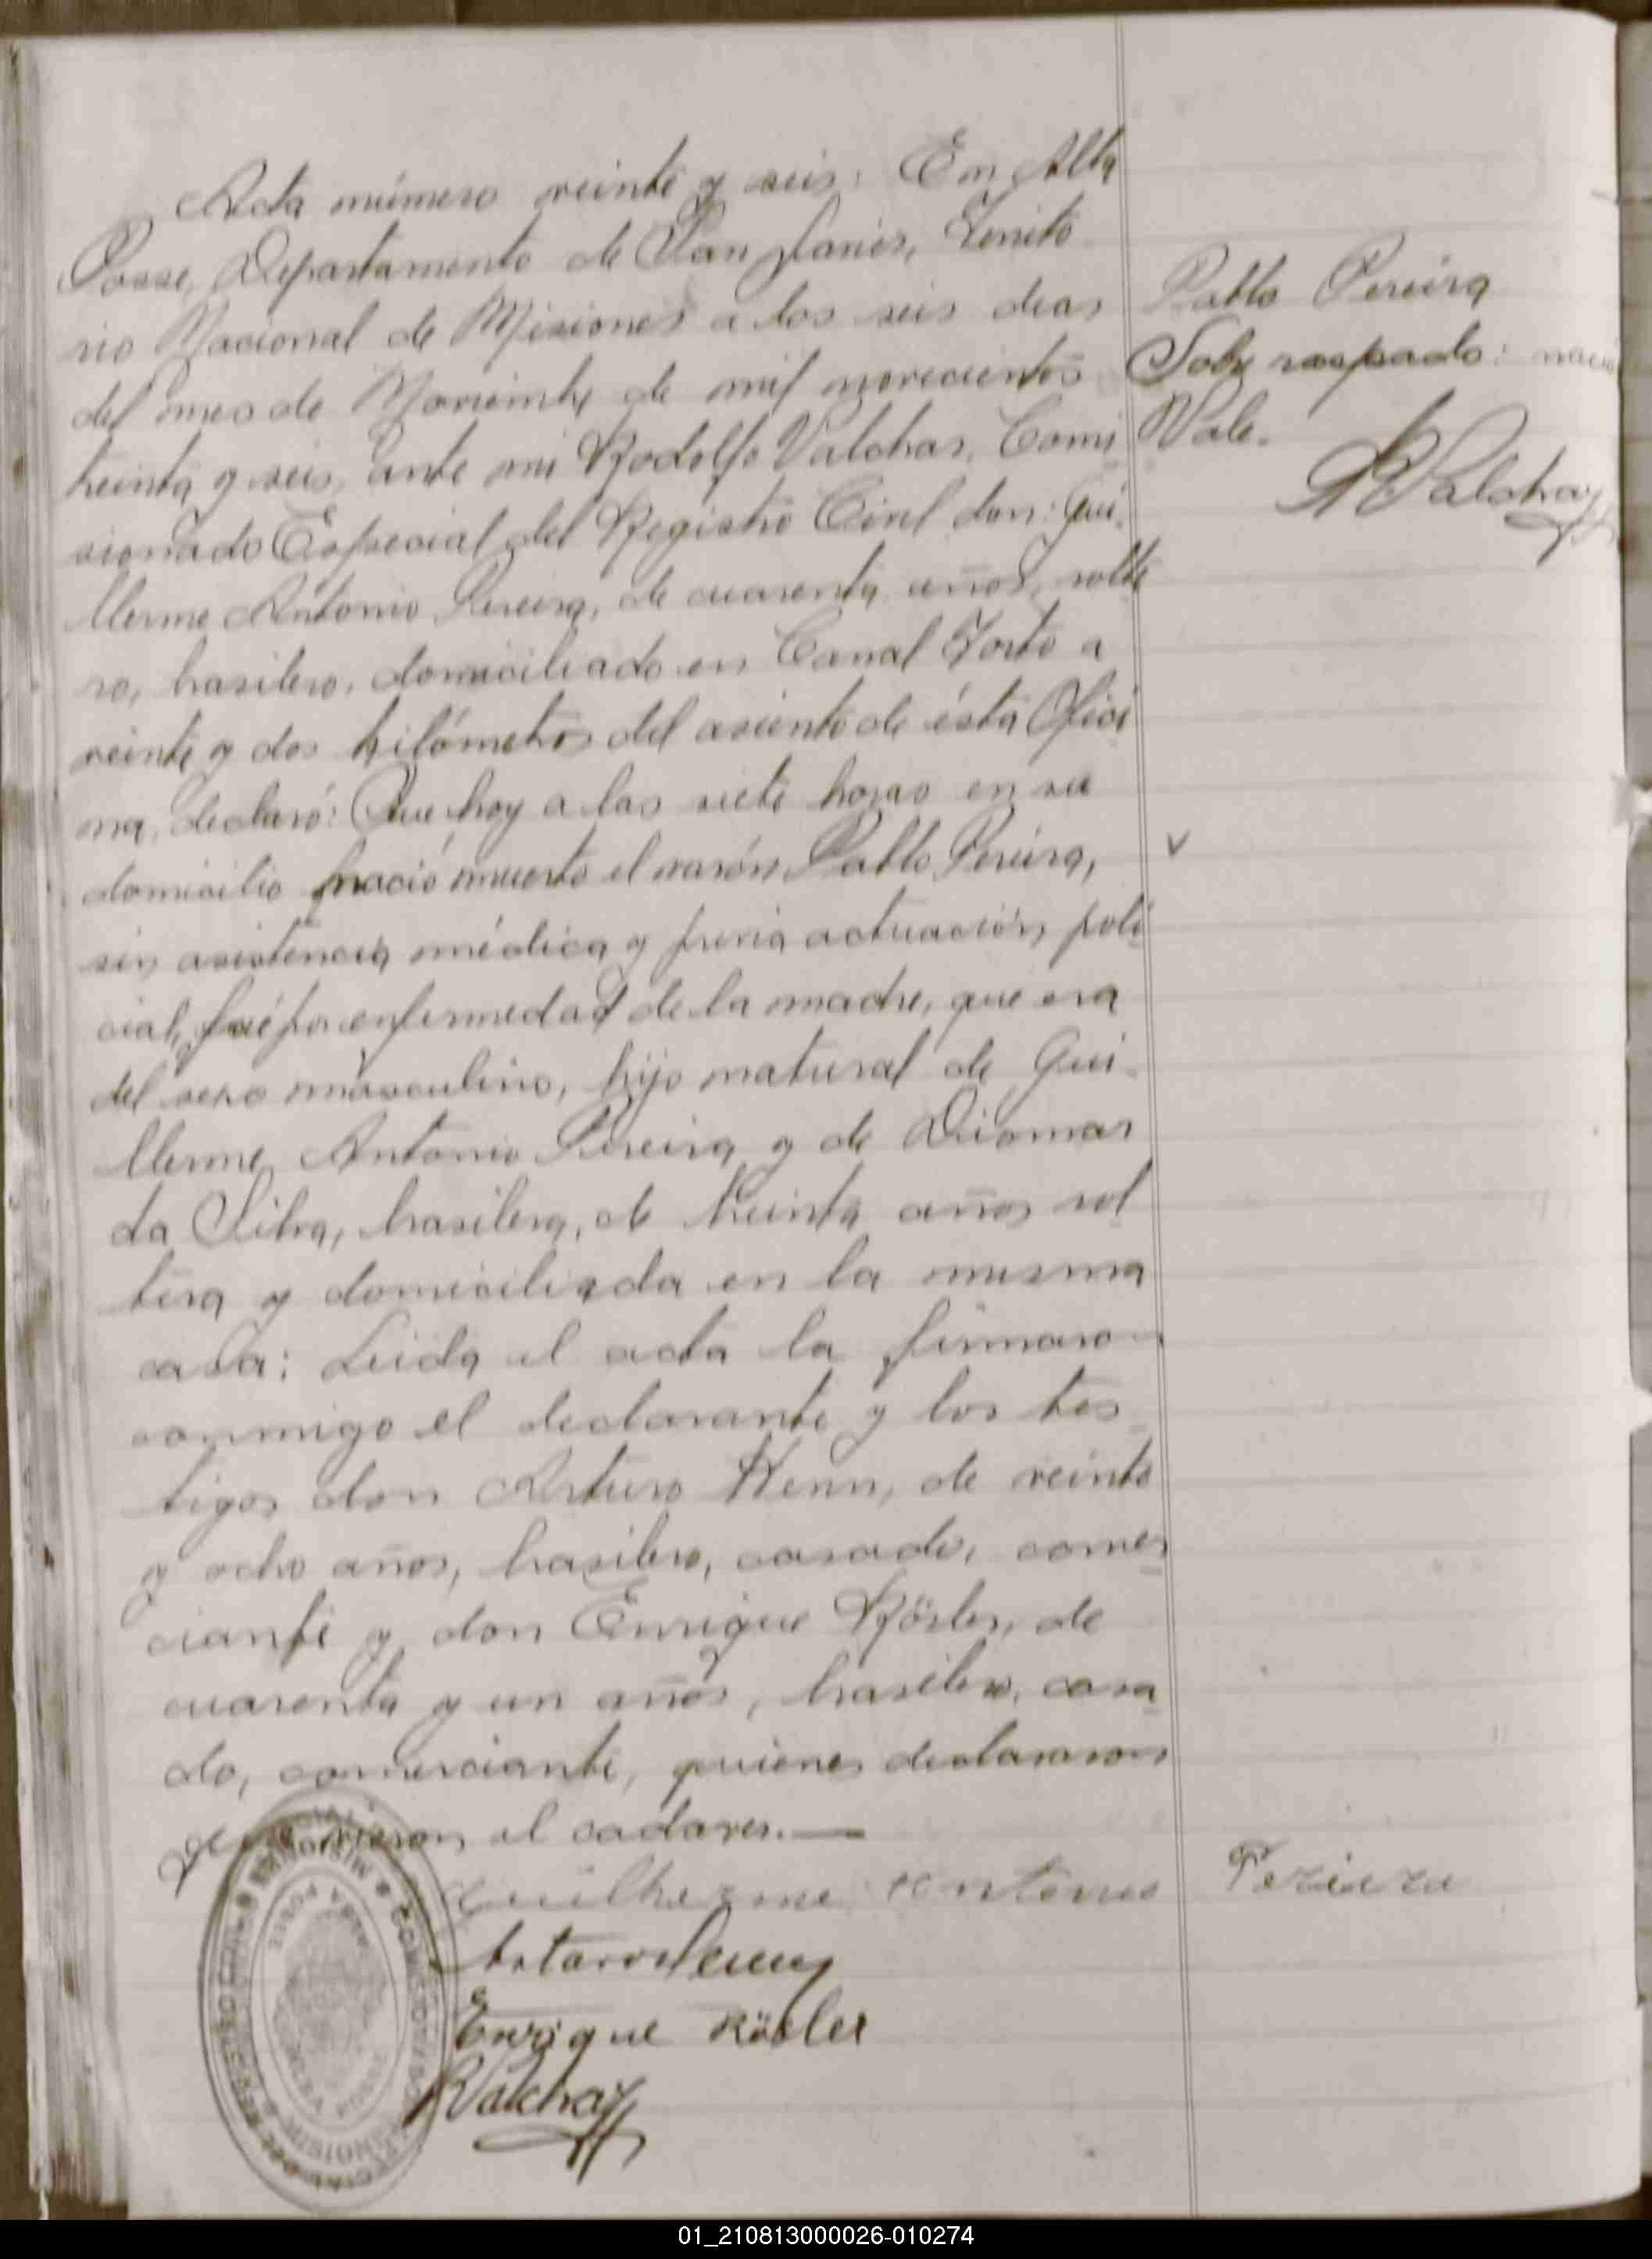 Acta número veinte y seis: En Alba
Posse, Departamento de San Javier, Territo
rio Nacional de Misiones a los seis dias
del mes de Noviembre de mil novecientos
treinta y seis, ante mi Rodolfo Valchar, Comi
sionado Especial del Registro Civil don: Gui-
llerme Antonio Pereira, de cuarenta años, solte
ro, brasilero, domiciliado en Canal Torto a
veinte y dos kilómetros del asiento de ésta Ofici
na, declaró: Que hoy a las siete horas en su
domicilio nació muerto el varón Pablo Pereira,
sin asistencia médica y previa actuación poli
cial, fué por enfermedad de la madre, que era
del sexo masculino, hijo natural de Gui-
llerme Antonio Pereira y de Diomar
da Silva, brasilera, de treinta años sol
tera y domiciliada en la misma
casa: Leida el acta la firmaron
conmigo el declarante y los tes-
tigos don Arturo Henn, de veinte
y ocho años, brasilero, casado, comer
ciante y don Enrique Rösler, de
cuarenta y un años, brasilero, casa
do, comerciante, quienes declararon
que vieron el cadaver.—
Guilherme Antonio Pereira
Arturo Henn
Enrique Rösler
RValchar
Pablo Pereira
Sobre raspado: nació
Vale.
RValchar
REGISTRO CIVIL
MISIONES
ALBA POSSE
01_210813000026-010274